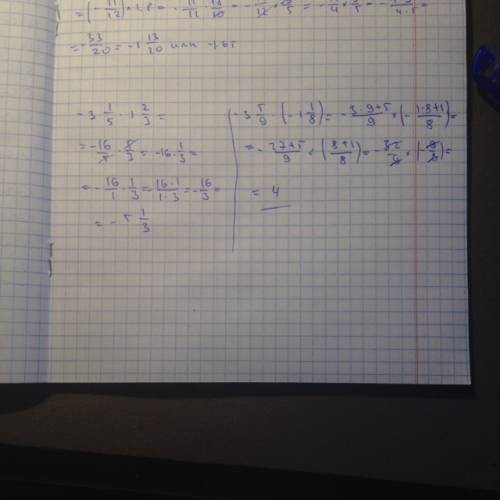 = (-11/12) · 1,8 = - 11/12 · 18/10 =
= -33/20 = -1 13/20 или -1,65
-3 1/5 · 1 2/3 =
= -16/5 · 5/3 = -16 · 1/3 =
= - 16/1 · 1/3 = 16·1/1·3 = -16/3 =
= - 5 1/3
-3 5/9 · (-1 1/8) = - 3·9+5/9 · (- 1·8+1/8) =
= - 27+5/9 · (8+1/8) = - 32/9 · (-9/8) =
= 4